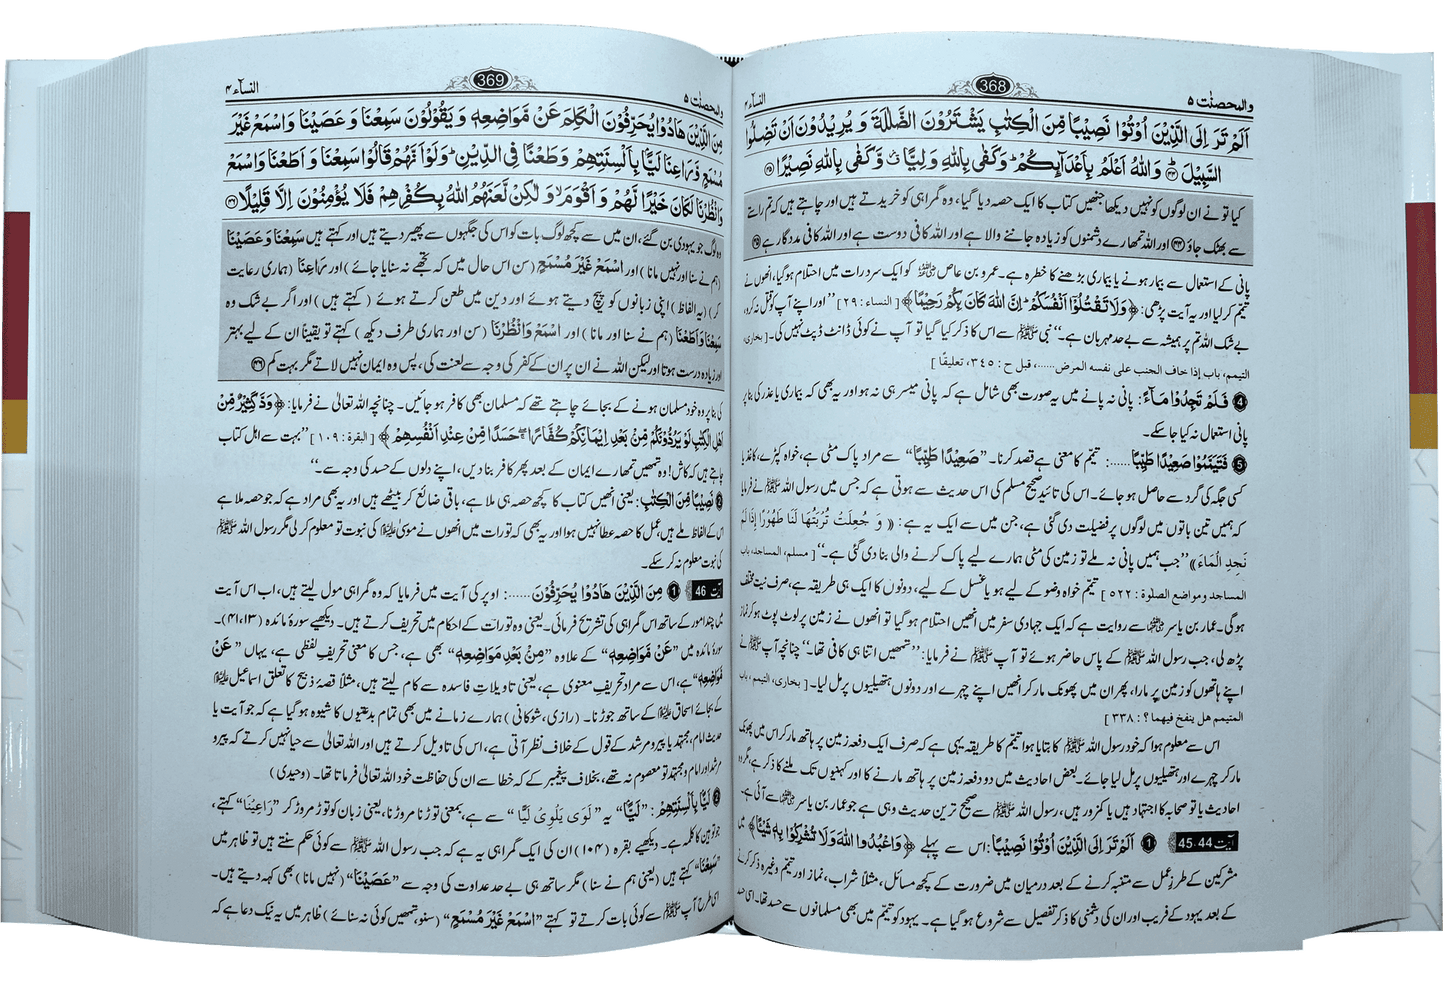 والمحصنٰت ۵
368
النساء ۴
اَلَمْ تَرَ اِلَى الَّذِيْنَ اُوْتُوْا نَصِيْبًا مِّنَ الْكِتٰبِ يَشْتَرُوْنَ الضَّلٰلَةَ وَ يُرِيْدُوْنَ اَنْ تَضِلُّوا
السَّبِيْلَ ﴿۴۴﴾ وَ اللّٰهُ اَعْلَمُ بِاَعْدَآىِٕكُمْ ؕ وَ كَفٰى بِاللّٰهِ وَلِيًّا ۙ وَّ كَفٰى بِاللّٰهِ نَصِيْرًا ﴿۴۵﴾
کیا تو نے ان لوگوں کو نہیں دیکھا جنھیں کتاب کا ایک حصہ دیا گیا، وہ گمراہی کو خریدتے ہیں اور چاہتے ہیں کہ تم راستے
سے بھٹک جاؤ ﴿۴۴﴾ اور اللہ تمھارے دشمنوں کو زیادہ جاننے والا ہے اور اللہ کافی دوست ہے اور اللہ کافی مددگار ہے ﴿۴۵﴾
پانی کے استعمال سے بیمار ہونے یا بیماری بڑھنے کا خطرہ ہے۔ عمرو بن عاص ؓ کو ایک سرد رات میں احتلام ہوگیا، انھوں نے
تیمم کر لیا اور یہ آیت پڑھی: ﴿وَ لَا تَقْتُلُوْۤا اَنْفُسَكُمْ ؕ اِنَّ اللّٰهَ كَانَ بِكُمْ رَحِيْمًا﴾ [ النساء : ۲۹ ] ”اور اپنے آپ کو قتل نہ کرو،
بے شک اللہ تم پر ہمیشہ سے بے حد مہربان ہے۔“ نبی ﷺ سے اس کا ذکر کیا گیا تو آپ نے کوئی ڈانٹ ڈپٹ نہیں کی۔ [ بخاری،
التیمم، باب إذا خاف الجنب على نفسه المرض……، قبل ح : ۳۴۵، تعلیقًا ]
4 فَلَمْ تَجِدُوْا مَآءً: پانی نہ پانے میں یہ صورت بھی شامل ہے کہ پانی میسر ہی نہ ہو اور یہ بھی کہ بیماری یا عذر کی بنا پر
پانی استعمال نہ کیا جا سکے۔
5 فَتَيَمَّمُوْا صَعِيْدًا طَيِّبًا……: تیمم کا معنی ہے قصد کرنا۔ ”صَعِيْدًا طَيِّبًا“ سے مراد پاک مٹی ہے، خواہ کپڑے، کاغذ یا
کسی جگہ کی گرد سے حاصل ہو جائے۔ اس کی تائید صحیح مسلم کی اس حدیث سے ہوتی ہے کہ جس میں رسول اللہ ﷺ نے فرمایا
کہ ہمیں تین باتوں میں لوگوں پر فضیلت دی گئی ہے، جن میں سے ایک یہ ہے: « وَ جُعِلَتْ تُرْبَتُهَا لَنَا طَهُوْرًا إِذَا لَمْ
نَجِدِ الْمَاءَ» ”جب ہمیں پانی نہ ملے تو زمین کی مٹی ہمارے لیے پاک کرنے والی بنا دی گئی ہے۔“ [ مسلم، المساجد، باب
المساجد و مواضع الصلوة : ۵۲۲ ] تیمم خواہ وضو کے لیے ہو یا غسل کے لیے، دونوں کا ایک ہی طریقہ ہے، صرف نیت مختلف
ہو گی۔ عمار بن یاسر ؓ سے روایت ہے کہ ایک جہادی سفر میں انھیں احتلام ہو گیا تو انھوں نے زمین پر لوٹ پوٹ ہو کر نماز
پڑھ لی، جب رسول اللہ ﷺ کے پاس حاضر ہوئے تو آپ ﷺ نے فرمایا: ”تمھیں اتنا ہی کافی تھا۔“ چنانچہ آپ ﷺ نے
اپنے ہاتھوں کو زمین پر مارا، پھر ان میں پھونک مار کر انھیں اپنے چہرے اور دونوں ہتھیلیوں پر مل لیا۔ [ بخاری، التیمم ، باب
المتیمم هل ينفخ فيهما؟ : ۳۳۸ ]
اس سے معلوم ہوا کہ خود رسول اللہ ﷺ کا بتایا ہوا تیمم کا طریقہ یہی ہے کہ صرف ایک دفعہ زمین پر ہاتھ مار کر اس میں پھونک
مار کر چہرے اور ہتھیلیوں پر مل لیا جائے۔ بعض احادیث میں دو دفعہ زمین پر ہاتھ مارنے کا اور کہنیوں تک ملنے کا ذکر ہے، مگر وہ
احادیث یا تو صحابہ کا اجتہاد ہیں یا کمزور ہیں، رسول اللہ ﷺ سے صحیح ترین حدیث وہی ہے جو عمار بن یاسر ؓ سے آئی ہے۔
آیت 45،44 1 اَلَمْ تَرَ اِلَى الَّذِيْنَ اُوْتُوْا نَصِيْبًا: اس سے پہلے ﴿وَ اعْبُدُوا اللّٰهَ وَ لَا تُشْرِكُوْا بِهٖ شَيْـًٔا﴾ میں
مشرکین کے طرزِ عمل سے متنبہ کرنے کے بعد درمیان میں ضرورت کے کچھ مسائل، مثلاً شراب، نماز اور تیمم وغیرہ ذکر کرنے
کے بعد یہود کے فریب اور ان کی دشمنی کا ذکر تفصیل سے شروع ہو گیا ہے۔ یہود کو تیمم میں بھی مسلمانوں سے حسد تھا۔ اسی حسد
369
النساء ۴
والمحصنٰت ۵
مِنَ الَّذِيْنَ هَادُوْا يُحَرِّفُوْنَ الْكَلِمَ عَنْ مَّوَاضِعِهٖ وَ يَقُوْلُوْنَ سَمِعْنَا وَ عَصَيْنَا وَ اسْمَعْ غَيْرَ
مُسْمَعٍ وَّ رَاعِنَا لَيًّۢا بِاَلْسِنَتِهِمْ وَ طَعْنًا فِى الدِّيْنِ ؕ وَ لَوْ اَنَّهُمْ قَالُوْا سَمِعْنَا وَ اَطَعْنَا وَ اسْمَعْ
وَ انْظُرْنَا لَكَانَ خَيْرًا لَّهُمْ وَ اَقْوَمَ ۙ وَ لٰكِنْ لَّعَنَهُمُ اللّٰهُ بِكُفْرِهِمْ فَلَا يُؤْمِنُوْنَ اِلَّا قَلِيْلًا ﴿۴۶﴾
وہ لوگ جو یہودی بن گئے، ان میں سے کچھ لوگ بات کو اس کی جگہوں سے پھیر دیتے ہیں اور کہتے ہیں سَمِعْنَا وَ عَصَيْنَا
(ہم نے سنا اور نہیں مانا) اور اسْمَعْ غَيْرَ مُسْمَعٍ (سن اس حال میں کہ تجھے نہ سنایا جائے) اور رَاعِنَا (ہماری رعایت
کر) (یہ الفاظ) اپنی زبانوں کو پیچ دیتے ہوئے اور دین میں طعن کرتے ہوئے (کہتے ہیں) اور اگر بے شک وہ
سَمِعْنَا وَ اَطَعْنَا (ہم نے سنا اور مانا) اور اسْمَعْ وَ انْظُرْنَا (سن اور ہماری طرف دیکھ) کہتے تو یقیناً ان کے لیے بہتر
اور زیادہ درست ہوتا اور لیکن اللہ نے ان پر ان کے کفر کی وجہ سے لعنت کی، پس وہ ایمان نہیں لاتے مگر بہت کم ﴿۴۶﴾
کی بنا پر وہ خود مسلمان ہونے کے بجائے چاہتے تھے کہ مسلمان بھی کافر ہو جائیں۔ چنانچہ اللہ تعالیٰ نے فرمایا: ﴿وَدَّ كَثِيْرٌ مِّنْ
اَهْلِ الْكِتٰبِ لَوْ يَرُدُّوْنَكُمْ مِّنْۢ بَعْدِ اِيْمَانِكُمْ كُفَّارًا ۖۚ حَسَدًا مِّنْ عِنْدِ اَنْفُسِهِمْ﴾ [ البقرة : ۱۰۹ ] ”بہت سے اہل کتاب
چاہتے ہیں کہ کاش! وہ تمھیں تمھارے ایمان کے بعد پھر کافر بنا دیں، اپنے دلوں کے حسد کی وجہ سے۔“
2 نَصِيْبًا مِّنَ الْكِتٰبِ: یعنی انھیں کتاب کا کچھ حصہ ہی ملا ہے، باقی ضائع کر بیٹھے ہیں اور یہ بھی مراد ہے کہ جو حصہ ملا ہے
اس کے الفاظ ملے ہیں، عمل کا حصہ عطا نہیں ہوا اور یہ بھی کہ تورات میں انھوں نے موسیٰ ؑ کی نبوت تو معلوم کر لی مگر رسول اللہ ﷺ
کی نبوت معلوم نہ کر سکے۔
آیت 46 1 مِنَ الَّذِيْنَ هَادُوْا يُحَرِّفُوْنَ……: اوپر کی آیت میں فرمایا کہ وہ گمراہی مول لیتے ہیں، اب اس آیت
میں چند امور کے ساتھ اس گمراہی کی تشریح فرمائی۔ یعنی وہ تورات کے احکام میں تحریف کرتے ہیں۔ دیکھیے سورۂ مائدہ (۴۱،۱۳)۔
سورۂ مائدہ میں ”عَنْ مَّوَاضِعِهٖ“ کے علاوہ ”مِنْۢ بَعْدِ مَوَاضِعِهٖ“ بھی ہے، جس کا معنی تحریفِ لفظی ہے، یہاں ”عَنْ
مَّوَاضِعِهٖ“ ہے، اس سے مراد تحریفِ معنوی ہے، یعنی تاویلاتِ فاسدہ سے کام لیتے ہیں، مثلاً قصۂ ذبیح کا تعلق اسماعیل ؑ
کے بجائے اسحاق ؑ کے ساتھ جوڑنا۔ (رازی، شوکانی) ہمارے زمانے میں بھی تمام بدعتیوں کا شیوہ ہو گیا ہے کہ جو آیت یا
حدیث امام، مجتہد یا پیر و مرشد کے قول کے خلاف نظر آتی ہے، اس کی تاویل کرتے ہیں اور اللہ تعالیٰ سے حیا نہیں کرتے کہ پیر و
مرشد اور امام و مجتہد تو معصوم نہ تھے، بخلاف پیغمبر کے کہ خطا سے ان کی حفاظت خود اللہ تعالیٰ فرماتا تھا۔ (وحیدی)
2 لَيًّۢا بِاَلْسِنَتِهِمْ: ”لَيًّا“ یہ ”لَوَى يَلْوِيْ لَيًّا“ سے ہے، بمعنی توڑنا مروڑنا، یعنی زبان کو توڑ مروڑ کر ”رَاعِيْنَا“ کہتے،
جو توہین کا کلمہ ہے۔ دیکھیے بقرہ (۱۰۴) ان کی ایک گمراہی یہ ہے کہ جب رسول اللہ ﷺ سے کوئی حکم سنتے ہیں تو ظاہر میں
”سَمِعْنَا“ کہتے ہیں (یعنی ہم نے سنا) مگر ساتھ ہی بے حد عداوت کی وجہ سے ”عَصَيْنَا“ (نہیں مانا) بھی کہہ دیتے ہیں۔
اسی طرح آپ ﷺ سے کوئی بات کرتے تو کہتے ”اسْمَعْ غَيْرَ مُسْمَعٍ“ (سنو، تمھیں کوئی نہ سنائے) ظاہر میں یہ نیک دعا ہے کہ